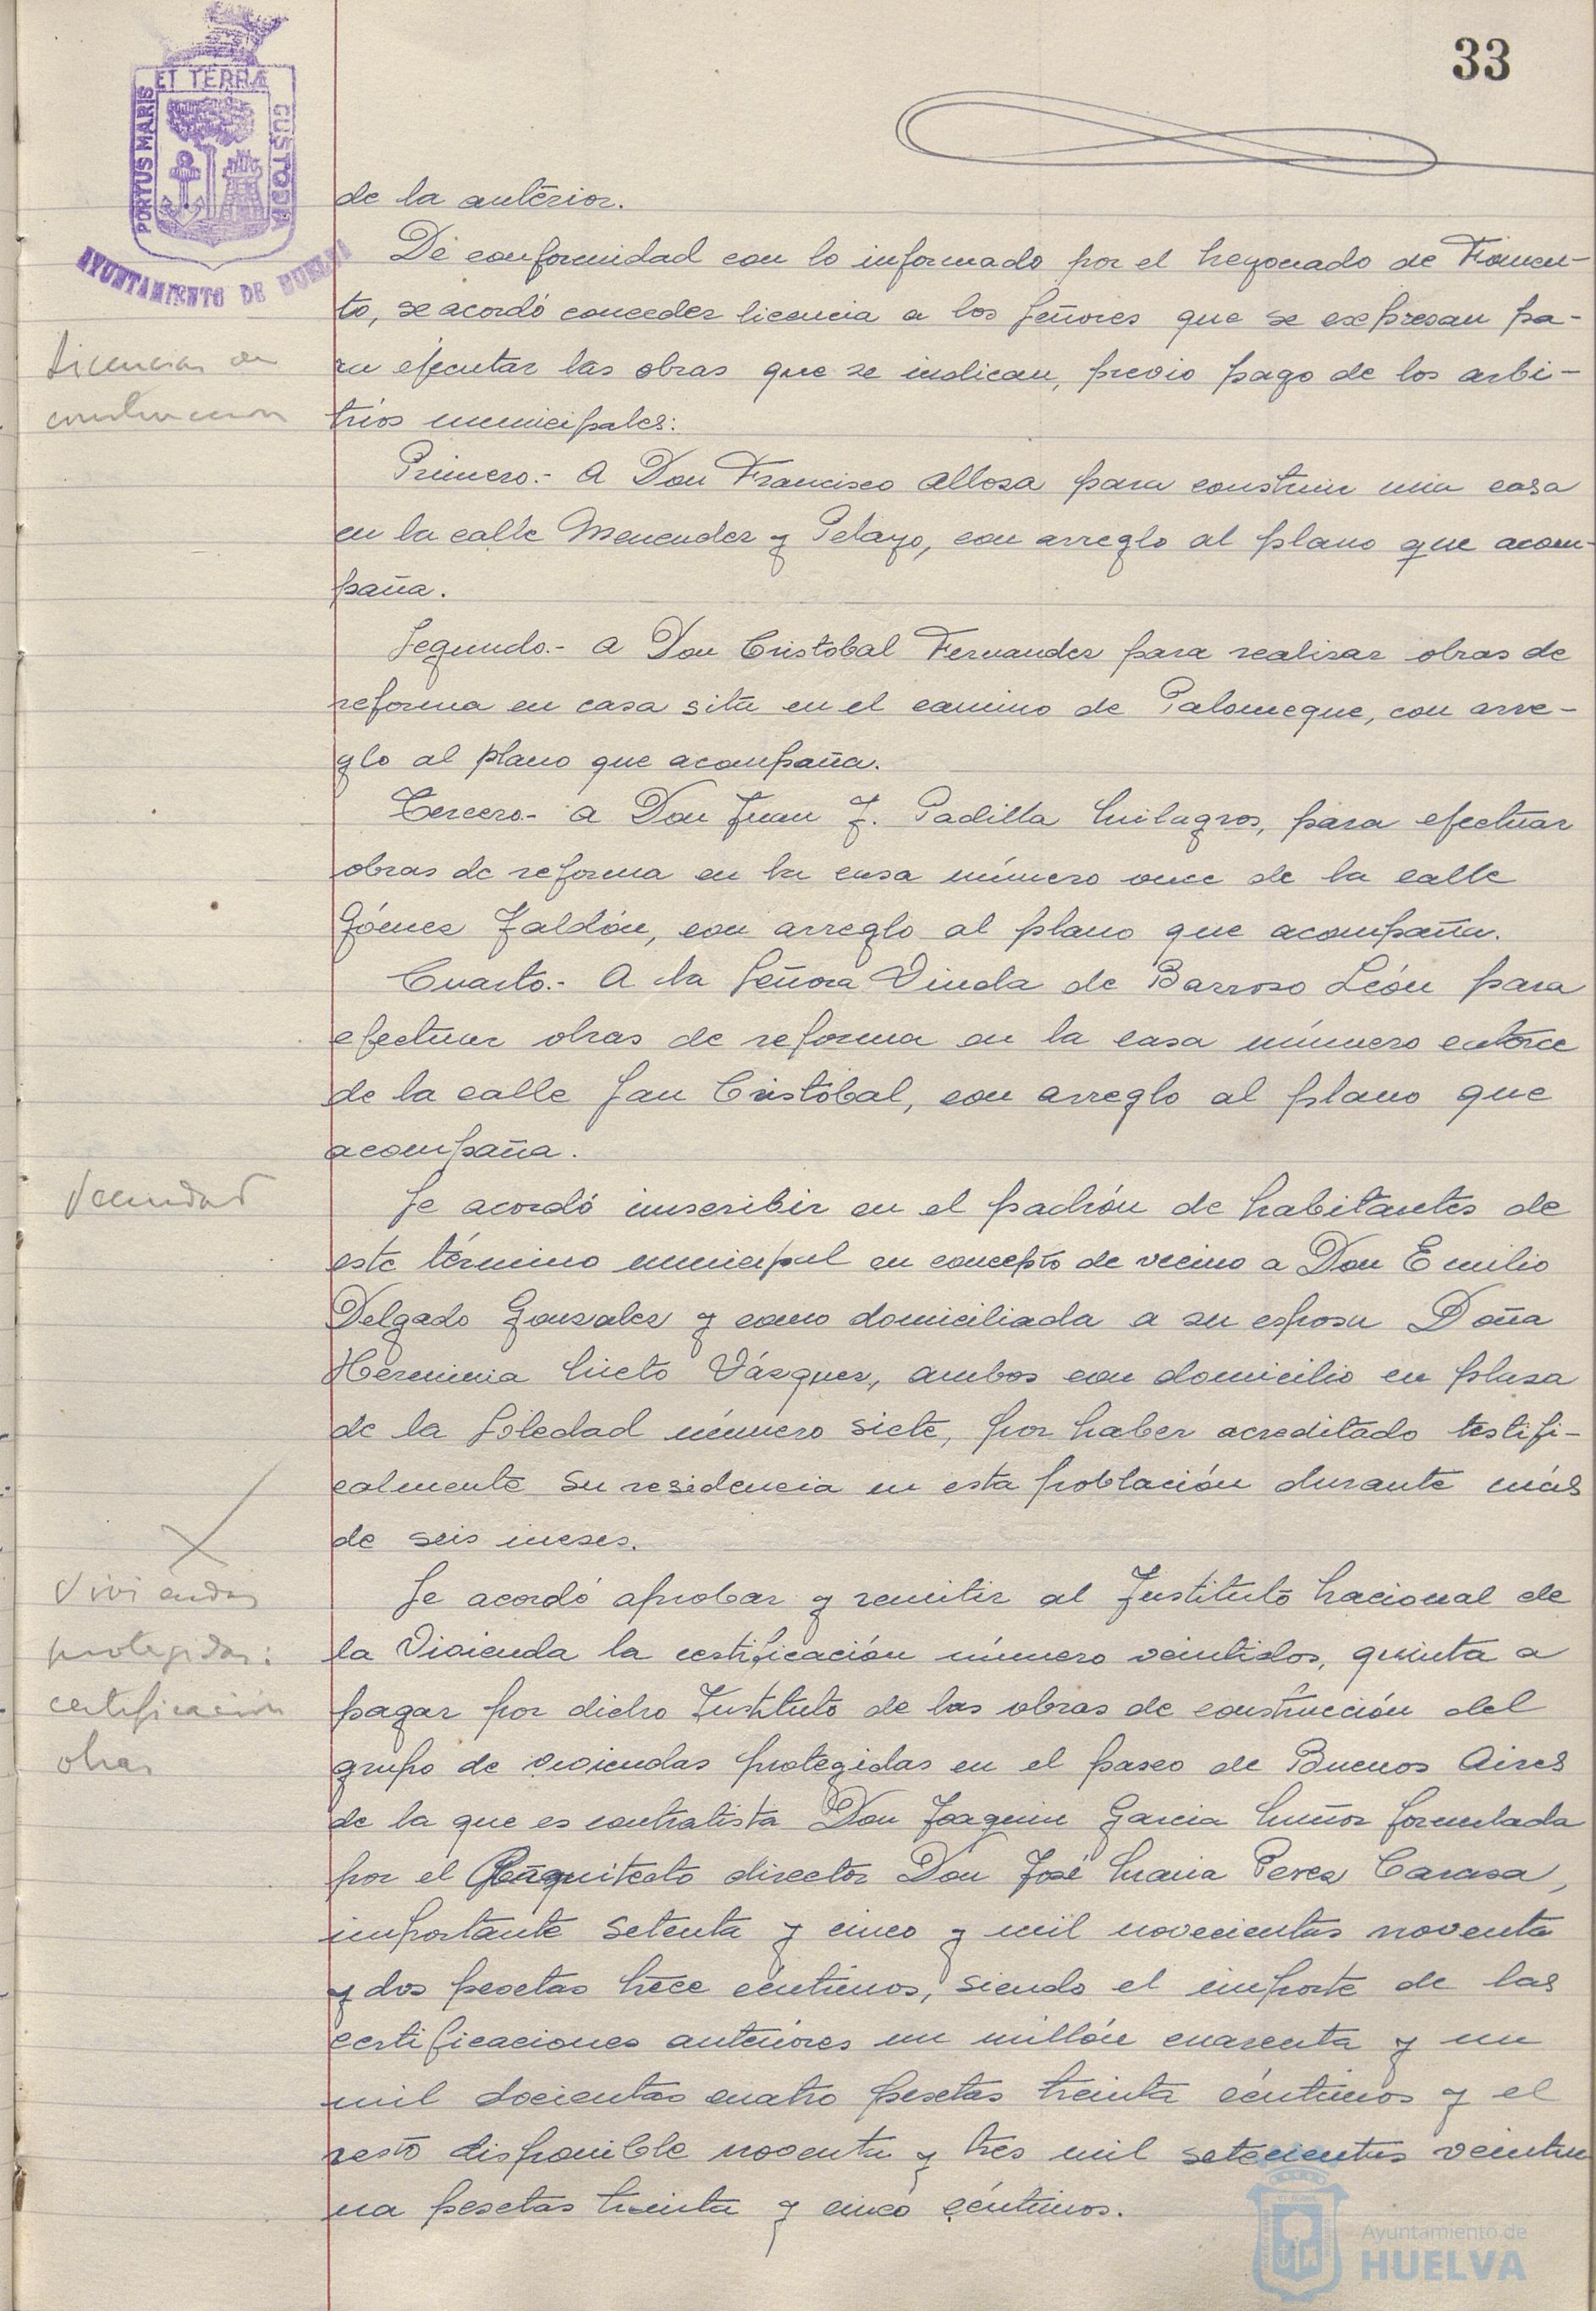 33
ET TERRÆ
PORTUS MARIS
CUSTODIA
AYUNTAMIENTO DE HUELVA
de la anterior.
De conformidad con lo informado por el Negociado de Fomen-
to, se acordó conceder licencia a los Señores que se expresan pa-
Licencias de
ra ejecutar las obras que se indican, previo pago de los arbi-
construccion
trios municipales:
Primero.- A Don Francisco Allosa para construir una casa
en la calle Menendez y Pelayo, con arreglo al plano que acom-
paña.
Segundo.- a Don Cristobal Fernandez para realizar obras de
reforma en casa sita en el camino de Palomeque, con arre-
glo al plano que acompaña.
Tercero.- a Don Juan J. Padilla Milagros, para efectuar
obras de reforma en la casa número once de la calle
Gómez Jaldón, con arreglo al plano que acompaña.
Cuarto.- A la Señora Viuda de Barroso León para
efectuar obras de reforma en la casa número catorce
de la calle San Cristóbal, con arreglo al plano que
acompaña.
Vecindad
Se acordó inscribir en el padrón de habitantes de
este término municipal en concepto de vecino a Don Emilio
Delgado Gonzalez y como domiciliada a su esposa Doña
Herminia Nieto Vázquez, ambos con domicilio en plaza
de la Soledad número siete, por haber acreditado testifi-
calmente su residencia en esta población durante más
de seis meses.
Viviendas
Se acordó aprobar y remitir al Instituto Nacional de
protegidas:
la Vivienda la certificación número veintidos, quinta a
certificación
pagar por dicho Instituto de las obras de construcción del
obras
grupo de viviendas protegidas en el paseo de Buenos Aires
de la que es contratista Don Joaquin Garcia Muñoz formulada
por el Arquitecto director Don José Maria Perez Carasa,
importante setenta y cinco y mil novecientas noventa
y dos pesetas trece céntimos, siendo el importe de las
certificaciones anteriores un millón cuarenta y un
mil docientas cuatro pesetas treinta céntimos y el
resto disponible noventa y tres mil setecientas veintiu
na pesetas treinta y cinco céntimos.
Ayuntamiento de
HUELVA